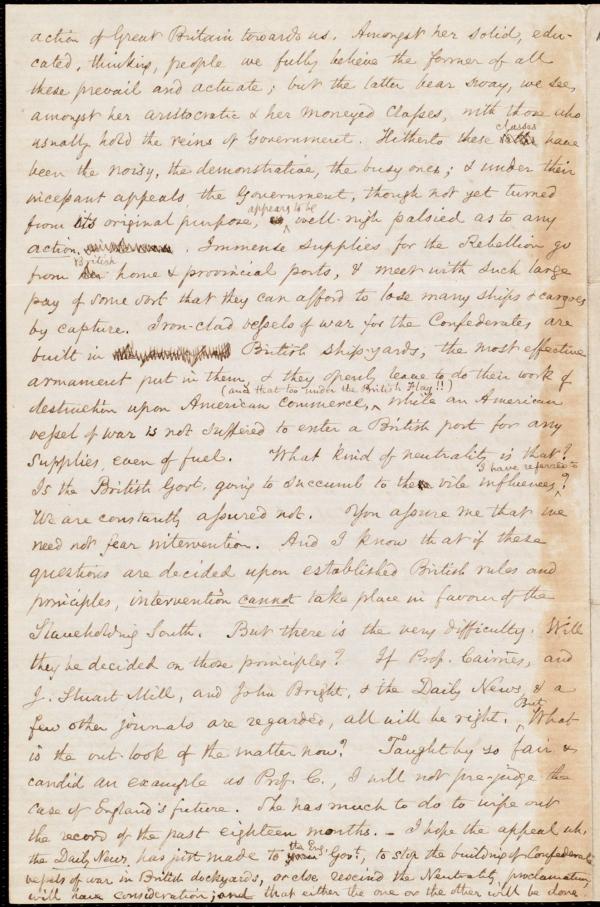 action of Great Britain towards us. Amongst her solid, edu-
cated, thinking, people we fully believe the former of all
these prevail and actuate; but the latter bear sway, we see,
amongst her aristocratic & her moneyed classes, with those who
usually hold the reins of Government. Hitherto these classes have
been the noisy, the demonstrative, the busy ones; & under their
incessant appeals, the Government, though not yet turned
from its original purpose, appears to be well-nigh palsied as to any
action. Immense supplies for the Rebellion go
from British home & provincial ports, & meet with such large
pay of some sort that they can afford to lose many ships & cargoes
by capture. Iron-clad vessels of war for the Confederates are
built in British ship-yards, the most effective
armament put in them, & they openly leave to do their work of
(and that too under the British Flag!!)
destruction upon American Commerce, while an American
vessel of war is not suffered to enter a British port for any
supplies, even of fuel. What kind of neutrality is that?
Is the British Govt. going to succumb to the vile influences I have referred to?
We are constantly assured not. You assure me that we
need not fear intervention. And I know that if these
questions are decided upon established British rules and
principles, intervention cannot take place in favour of the
Slaveholding South. But there is the very difficulty. Will
they be decided on those principles? If Prof. Cairnes, and
J. Stuart Mill, and John Bright, & the Daily News, & a
few other journals are regarded, all will be right. But What
is the out-look of the matter now? Taught by so fair &
candid an example as Prof. C., I will not pre-judge the
case of England's future. She has much to do to wipe out
the record of the past eighteen months. — I hope the appeal wh.
the Daily News, has just made to the Eng. Govt., to stop the building of Confederate
vessels of war in British dockyards, or else rescind the Neutrality proclamation,
will have consideration; and that either the one or the other will be done.